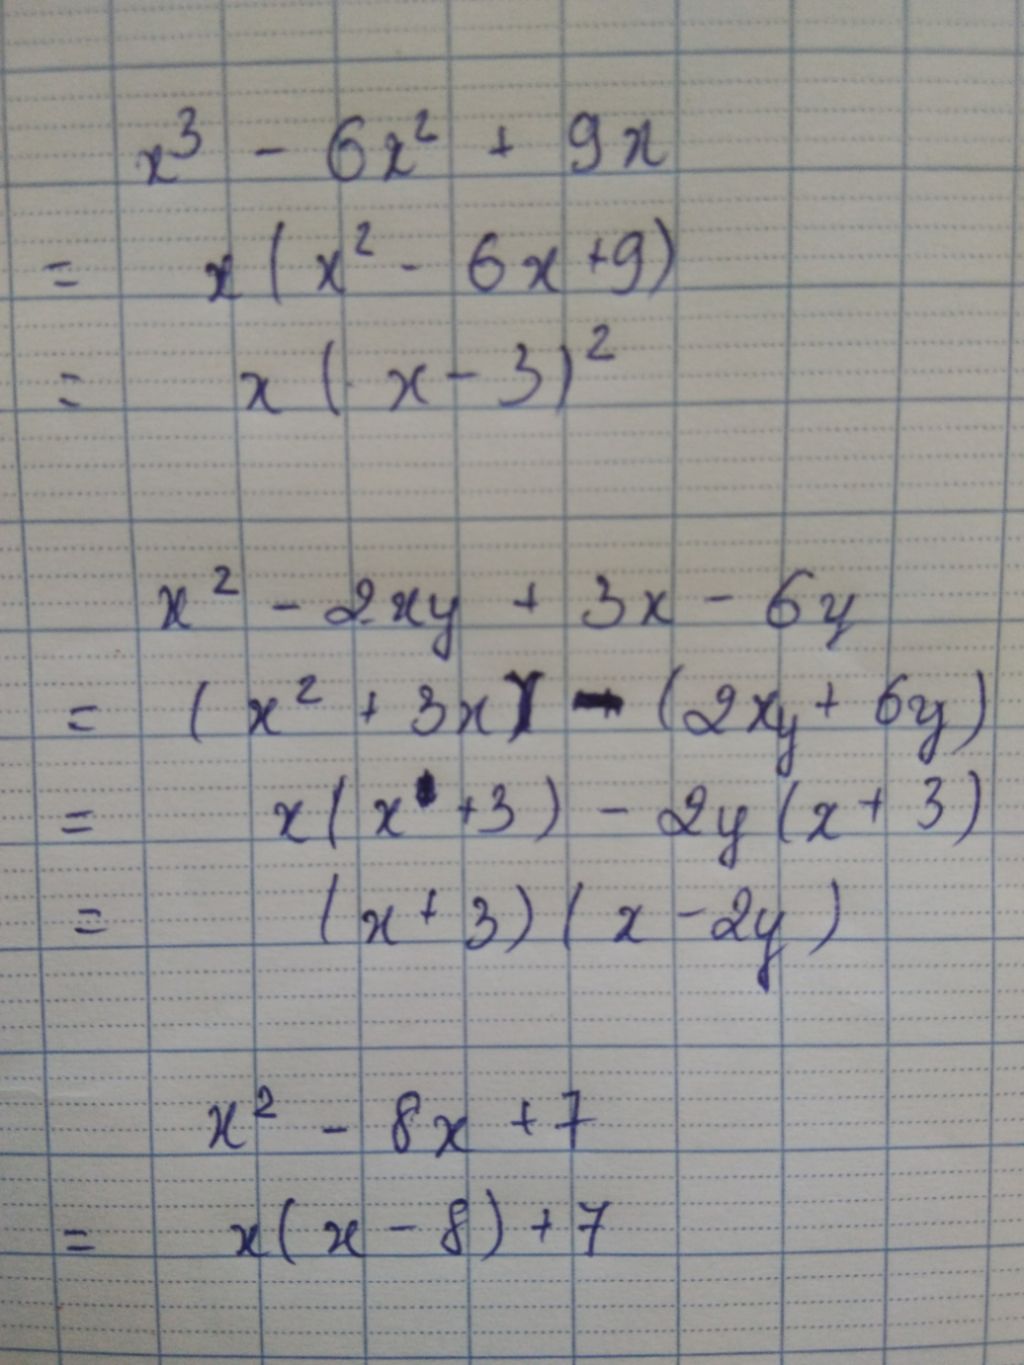 x³ - 6x² + 9x
= x(x² - 6x+9)
= x(x-3)²
x² - 2xy + 3x - 6y
= (x² + 3x) - (2xy + 6y)
= x(x +3) - 2y(x + 3)
= (x + 3)(x - 2y)
x² - 8x + 7
= x(x - 8) + 7